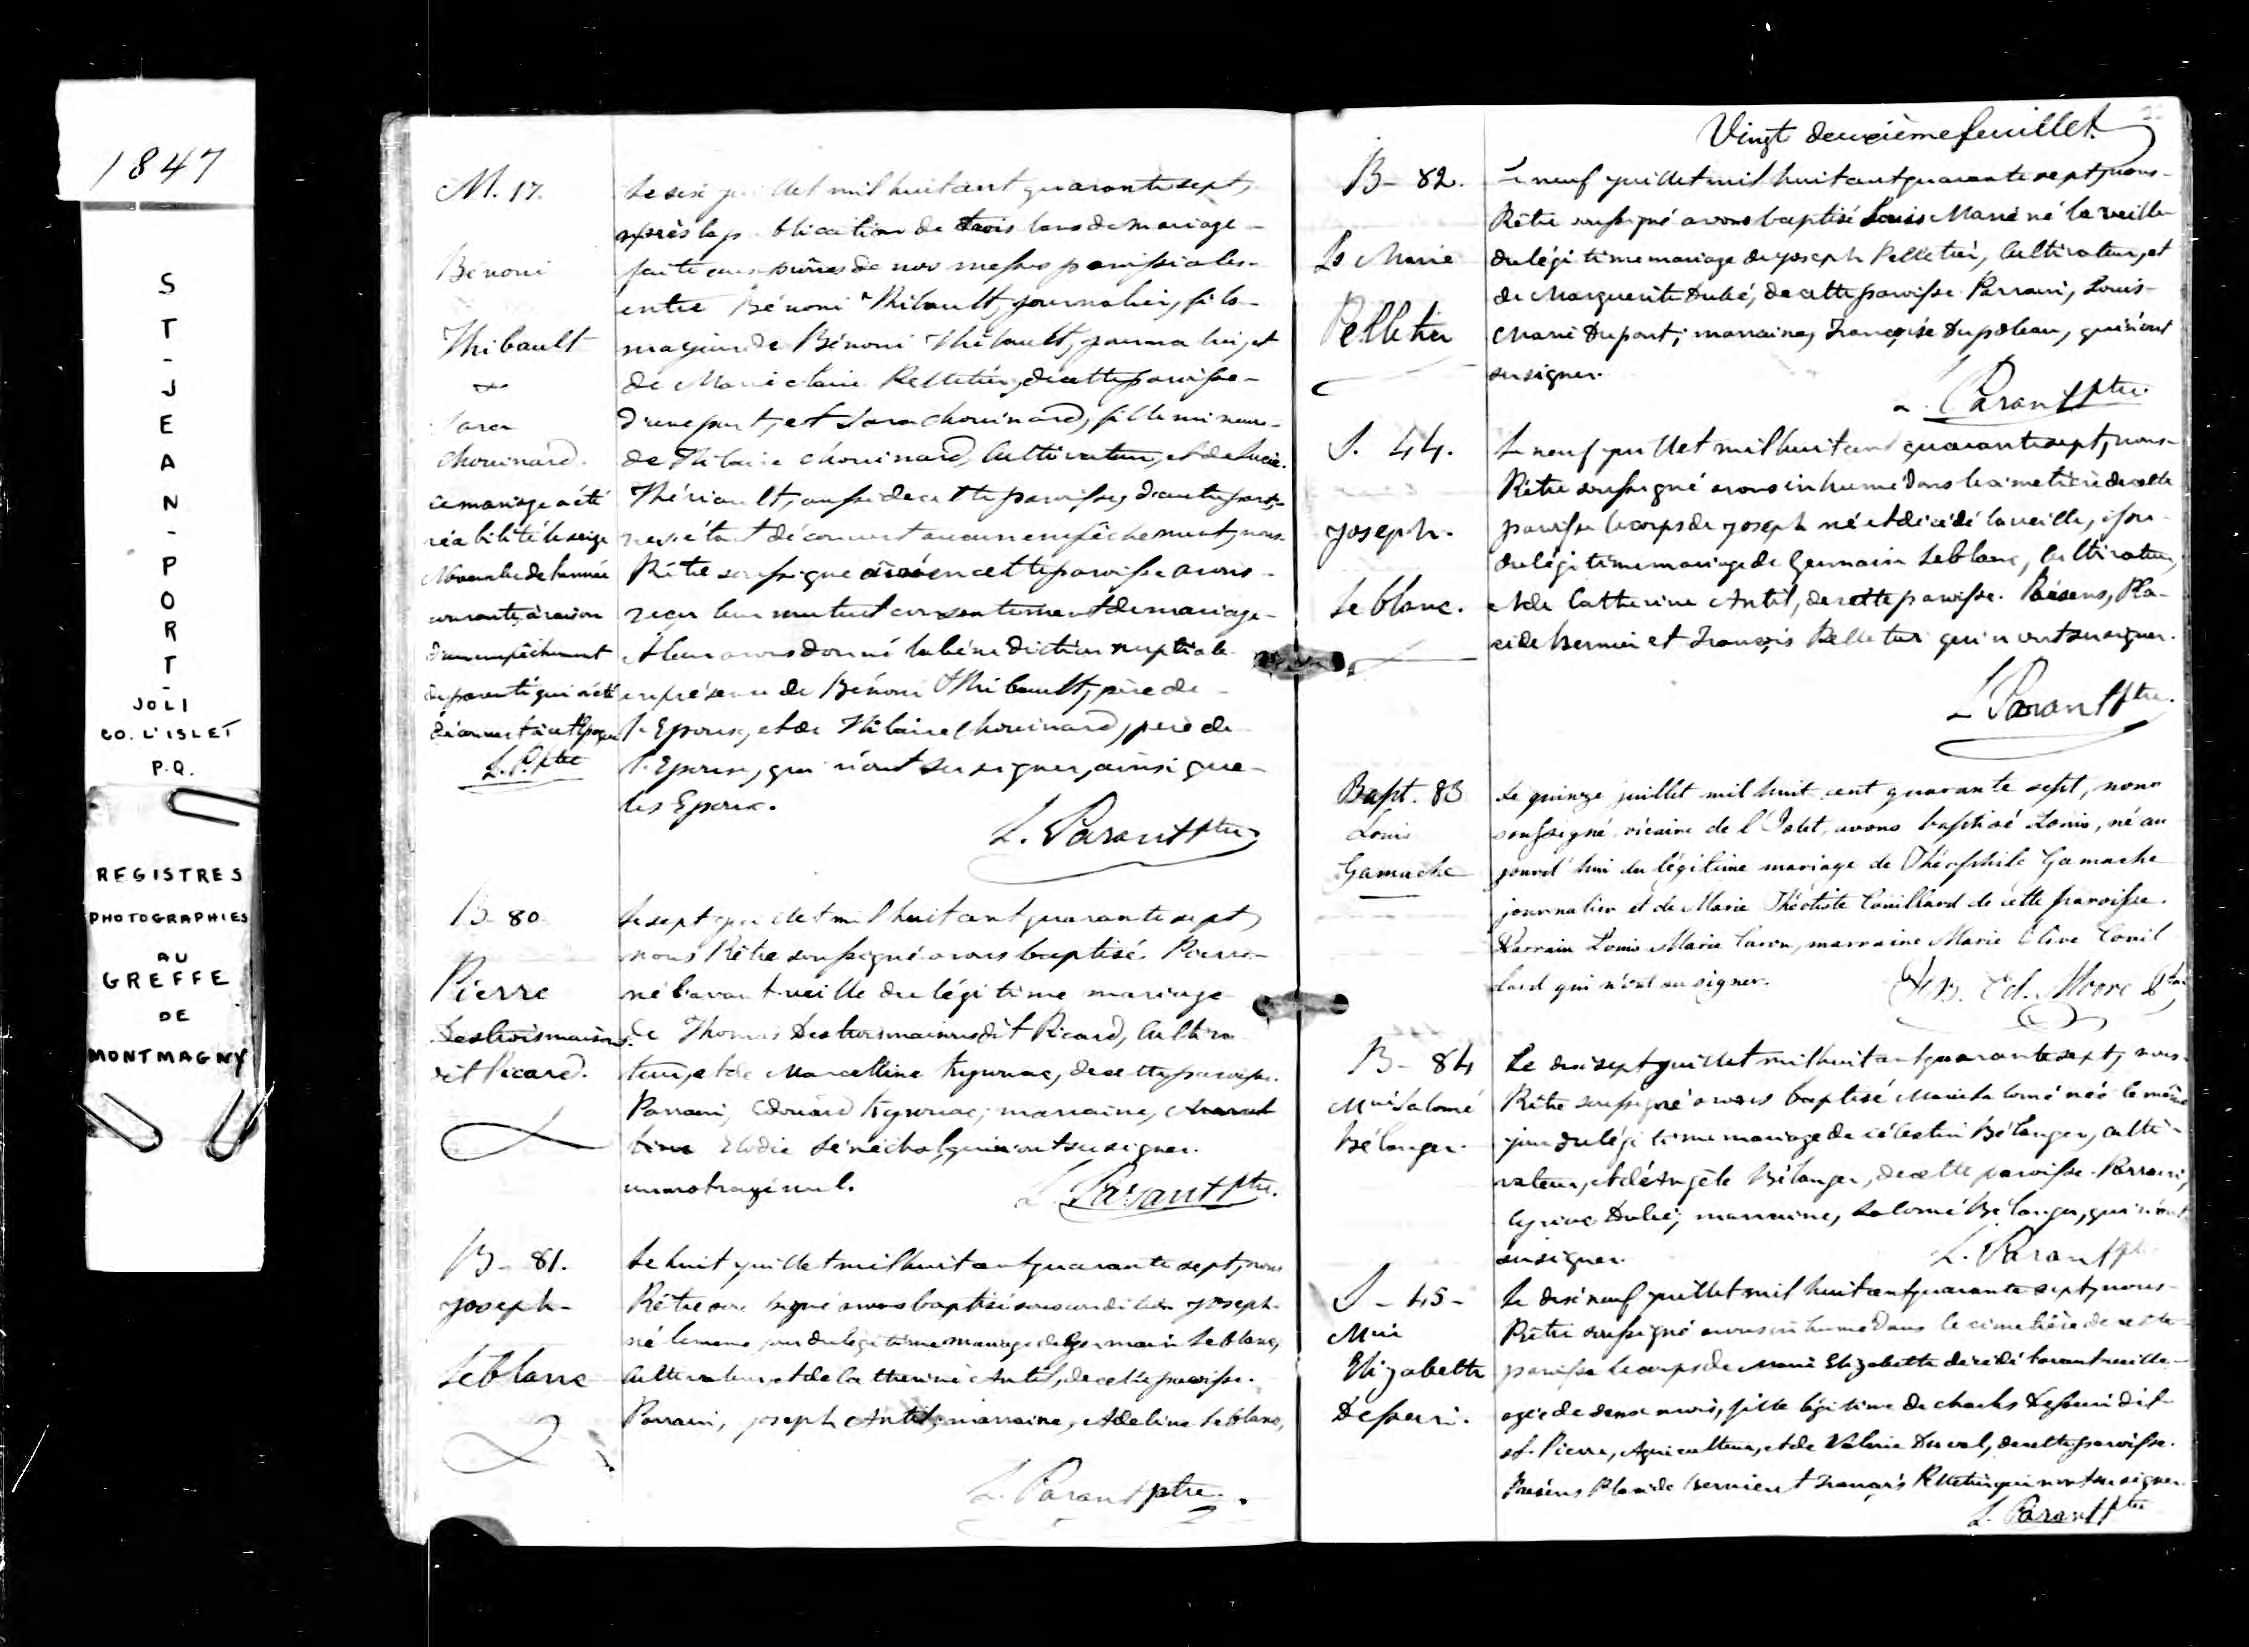 1847
ST-JEAN-PORT-
JOLI
CO. L'ISLET
P.Q.
REGISTRES
PHOTOGRAPHIES
AU
GREFFE
DE
MONTMAGNY
M. 17.
Bénoni
Thibault
&
Sara
Chouinard.
ce mariage a été
réabilité le seize
Novembre de l'année
courante, à raison
d'un empêchement
de parenté qui a été
découvert à cet Epoque
L. P. Ptre
Le six juillet mil huit cent quarante sept,
après la publication de trois bans de mariage
faite aux prônes de nos messes paroissiales
entre Bénoni Thibault, journalier, fils
majeur de Bénoni Thibault, journalier, et
de Marie Claire Pelletier, de cette paroisse
d'une part, et Sara Chouinard, fille mineure
de Hilaire Chouinard, Cultivateur, et de Lucie
Thériault, aussi de cette paroisse, d'autre part,
ne s'étant découvert aucun empêchement, nous
Prêtre soussigné curé en cette paroisse avons
reçu leur mutuel consentement de mariage
et leur avons donné la bénédiction nuptiale
en présence de Bénoni Thibault, père de
l'Epoux, et de Hilaire Chouinard, père de
l'Epouse, qui n'ont su signer, ainsi que
les Epoux.
L. Parant Ptre
B- 80
Pierre
Destroismaisons
dit Picard.
Le sept juillet mil huit cent quarante sept,
nous Prêtre soussigné avons baptisé Pierre
né l'avant veille du légitime mariage
de Thomas Destroismaisons dit Picard, Cultiva
teur, et de Marcelline, de cette paroisse.
Parrain, Edouard; marraine,
Elodie Sénéchal, qui n'ont su signer.
un mot rayé nul.
L. Parant Ptre.
B- 81.
Joseph
Leblanc
Le huit juillet mil huit cent quarante sept, nous
Prêtre soussigné avons baptisé sous condition Joseph
né le même jour du légitime mariage de Germain Leblanc,
Cultivateur, et de Catherine Antil, de cette paroisse.
Parrain, Joseph Antil; marraine, Adeline Leblanc,
L. Parant ptre.
Vingt deuxième feuillet.
B- 82.
Ls Marie
Pelletier
Le neuf juillet mil huit cent quarante sept, nous
Prêtre soussigné avons baptisé Louis Marie né la veille
du légitime mariage de Joseph Pelletier, Cultivateur, et
de Marguerite Dubé, de cette paroisse. Parrain, Louis
Marie Dupont; marraine, Françoise, qui n'ont
su signer.
L. Parant Ptre.
S. 44.
Joseph
Leblanc.
Le neuf juillet mil huit cent quarante sept, nous
Prêtre soussigné avons inhumé dans le cimetière de cette
paroisse le corps de Joseph né et décédé la veille, issu
du légitime mariage de Germain Leblanc, Cultivateur,
et de Catherine Antil, de cette paroisse. Présens, Pla-
cide Bernier et François Pelletier qui n'ont su signer.
L. Parant Ptre.
Bapt. 83
Louis
Gamache
Le quinze juillet mil huit cent quarante sept, nous
soussigné vicaire de l'Islet, avons baptisé Louis, né au
jourd'hui du légitime mariage de Théophile Gamache
journalier et de Marie Théotiste Couillard de cette paroisse.
Parrain Louis Marie Caron, marraine Marie Olive Couil
lard qui n'ont su signer.
Ed. Moore Ptre
B- 84
Mrie Salomé
Bélanger.
Le dix sept juillet mil huit cent quarante sept, nous
Prêtre soussigné avons baptisé Marie Salomé née le même
jour du légitime mariage de Célestin Bélanger, culti-
vateur, et d'Angèle Bélanger, de cette paroisse. Parrain,
Cyriac Dubé; marraine, Salomé Bélanger, qui n'ont
su signer.
L. Parant Ptre
S- 45-
Mrie
Elizabette
Desseri.
Le dix neuf juillet mil huit cent quarante sept, nous
Prêtre soussigné avons inhumé dans le cimetière de cette
paroisse le corps de Marie Elizabette décédé l'avant veille
agée de onze mois, fille légitime de Charles dit
St. Pierre, Agriculteur, et de Valerie Duval, de cette paroisse.
Présens Placide Bernier et François Pelletier qui n'ont su signer
L. Parant Ptre